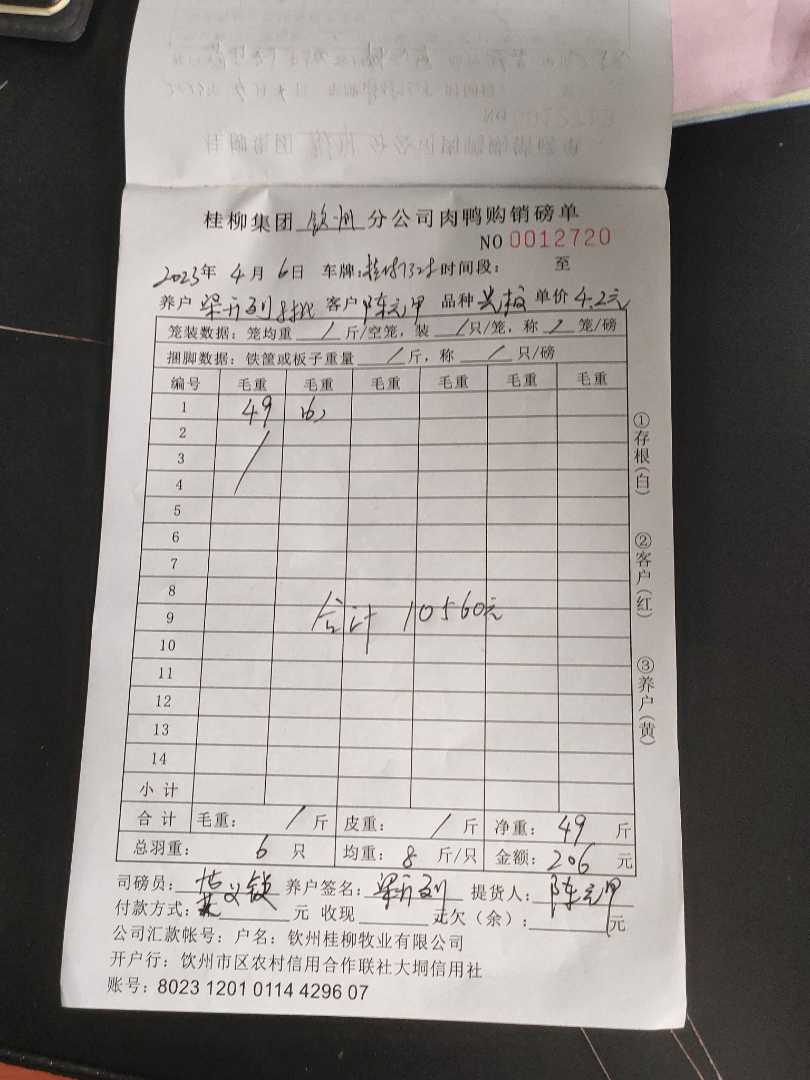 桂柳集团 钦州 分公司肉鸭购销磅单
NO 0012720
2023年 4月 6日 车牌: 时间段: 至
养户 客户 陈元甲 品种 单价 4.2元
笼装数据: 笼均重 / 斤/空笼, 装 / 只/笼, 称 / 笼/磅
捆脚数据: 铁筐或板子重量 / 斤, 称 / 只/磅
编号 毛重 毛重 毛重 毛重 毛重 毛重
1 49
2
3
4
5
6
7
8
9
合计 10560元
10
11
12
13
14
小计
合计 毛重: / 斤 皮重: / 斤 净重: 49 斤
总羽重: 6 只 均重: 8 斤/只 金额: 206 元
司磅员: 养户签名: 提货人: 陈元甲
付款方式: 元 收现 元欠(余): 元
公司汇款帐号: 户名: 钦州桂柳牧业有限公司
开户行: 钦州市区农村信用合作联社大垌信用社
账号: 8023 1201 0114 4296 07
①存根(白)
②客户(红)
③养户(黄)